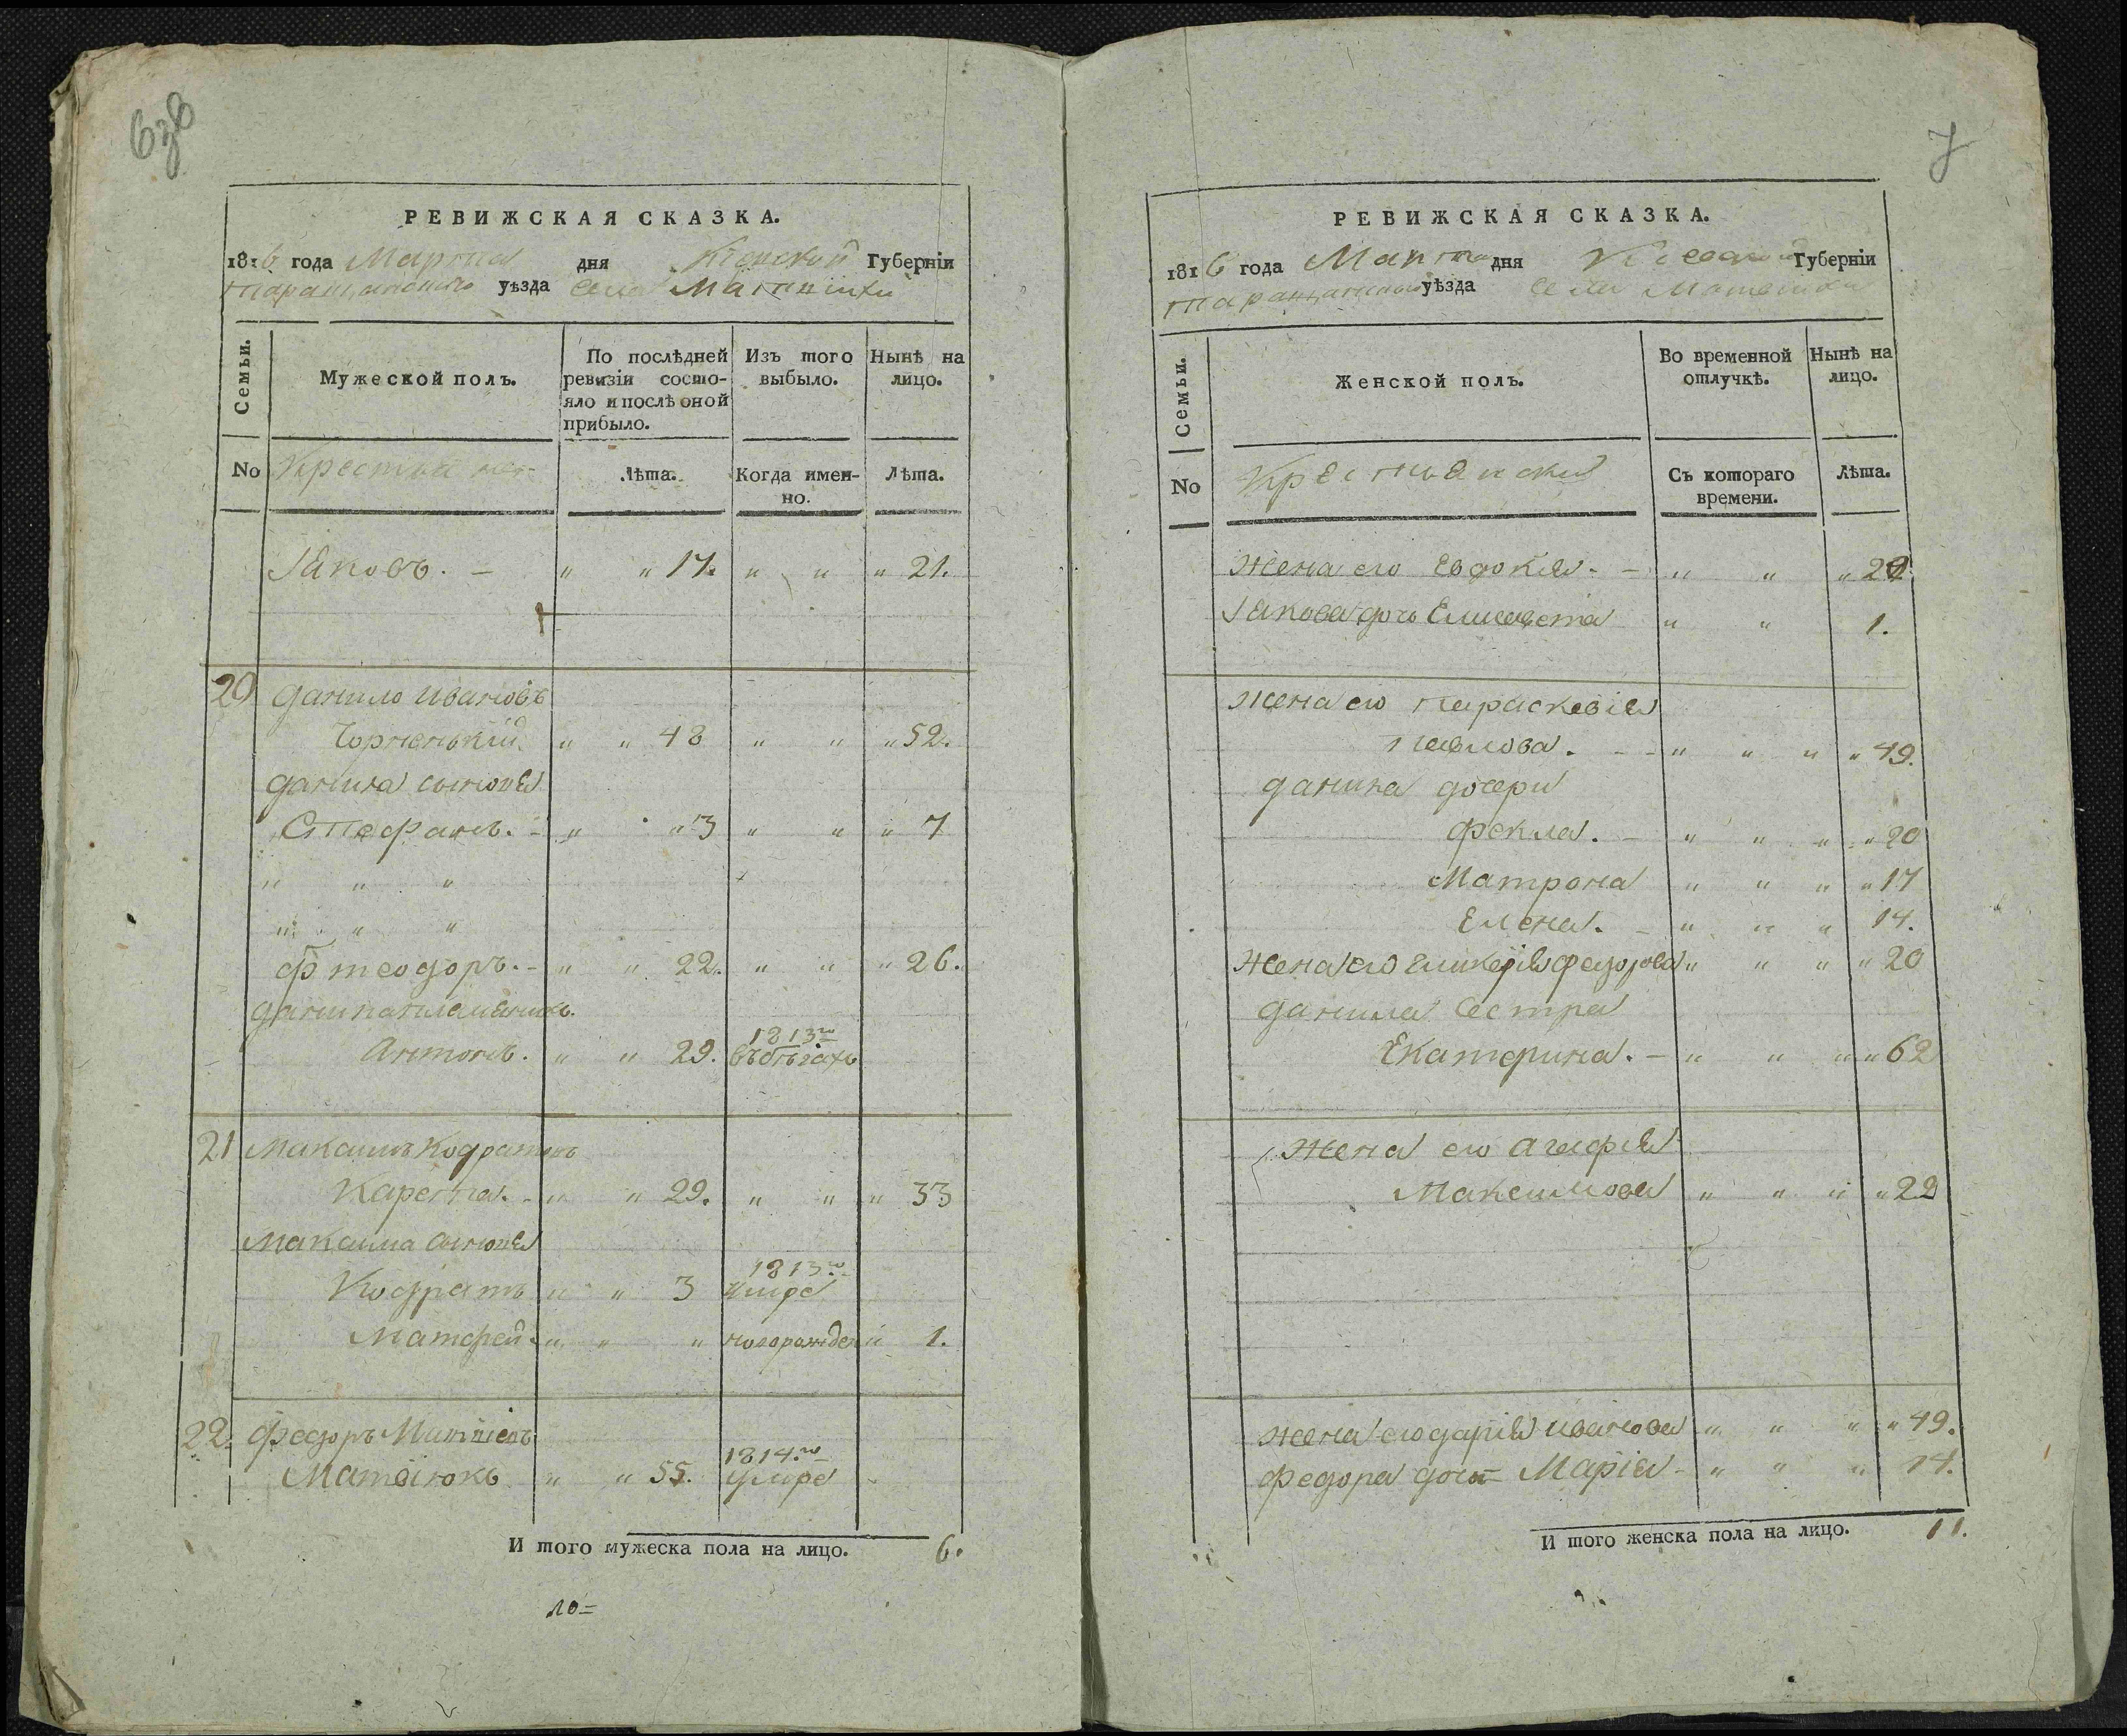 6зв
РЕВИЖСКАЯ СКАЗКА.
1816 года Марта дня Кіевской Губерніи
таращанского уѣзда села
Семьи.
Мужеской полъ.
По послѣдней ревизіи состояло и послѣ оной прибыло.
Изъ того выбыло.
Нынѣ на лицо.
No
Лѣта.
Когда именно.
Лѣта.
Іаковъ. — " " 17. " " " 21.
20 данило ивановъ
Чорненькій " " 48 " " " 52.
данила сыновя
Стефанъ. - " " 3 " " " 7
" " "
" " "
Фтеодоръ. - " " 22. " " " 26.
Антонъ. " " 29. 1813го въ бѣгахъ
21 Максимъ Кодратовъ
" " 29. " " " 33
Максима сыновя
Кодратъ " " 3 1813го умре
Матфей. " " " новорожден " 1.
22. Федоръ
" " 55. 1814го умре
И того мужеска пола на лицо. 6.
10=
7
РЕВИЖСКАЯ СКАЗКА.
1816 года Марта дня Кіевской Губерніи
таращанского уѣзда села
Семьи.
Женской полъ.
Во временной отлучкѣ.
Нынѣ на лицо.
No
Крестьянский
Съ котораго времени.
Лѣта.
Жена его Евдокия. — " " "
Іакова дочь Елисавета " " 1.
жена его параскевія
павлова. - - " " " " 49.
данила дочери
фекла. — " " " " 20
Матрона " " " " 17
Елена. - " " " 14.
Жена его гликерія федорова " " " " 20
данила Сестра
Екатерина. — " " " " 62
Жена его агафія
Максимова " " " " 29
жена его дарія иванова " " " " 49.
федора дочь Марія - " " " 14.
И того женска пола на лицо. 11.